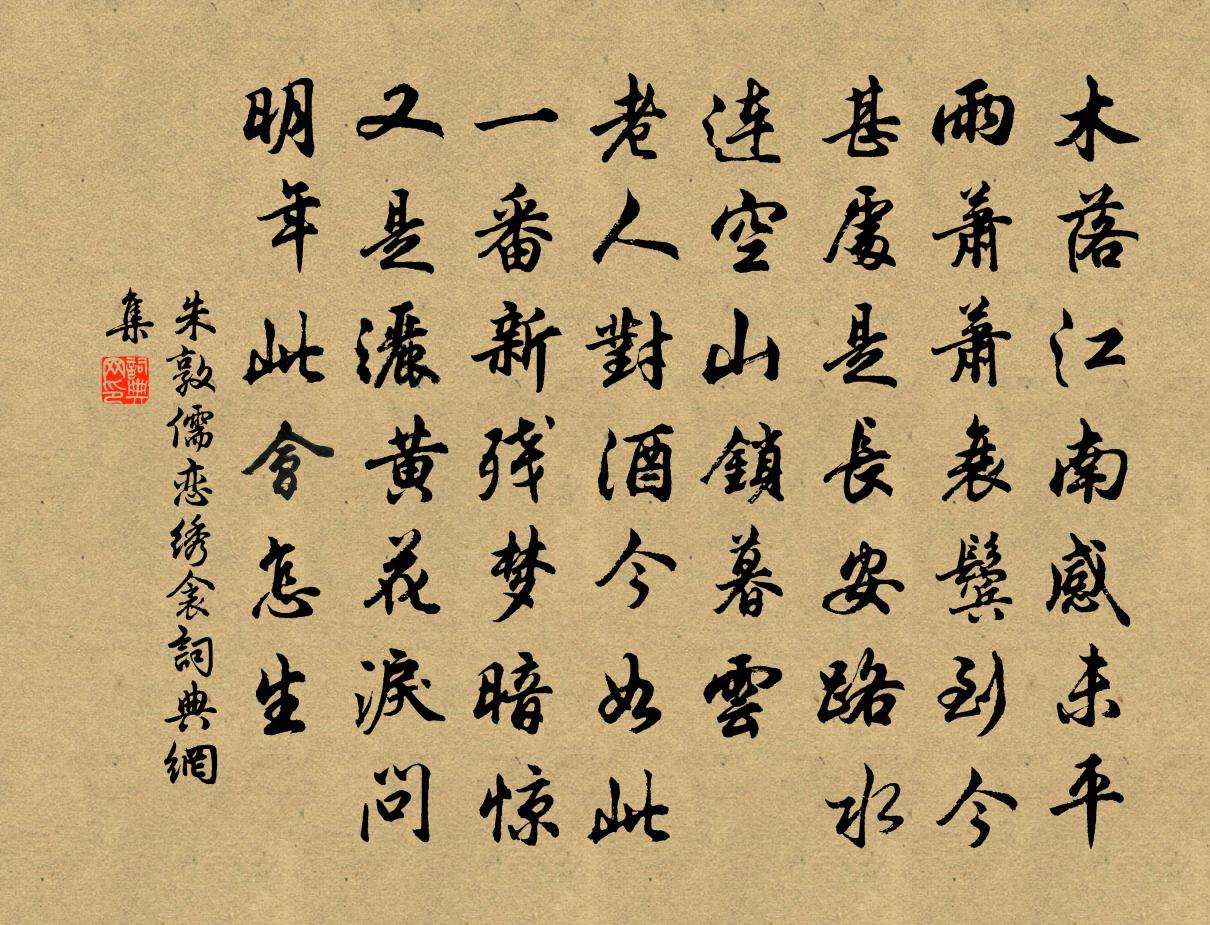 木落江南感未平
雨萧萧衰鬓到今
甚處是長安路水
連空山鎖暮雲
老人對酒今如此
一番新残梦暗惊
又是灑黄花淚問
明年此會怎生
朱敦儒恋绣衾詞典網
集
詞典
网印